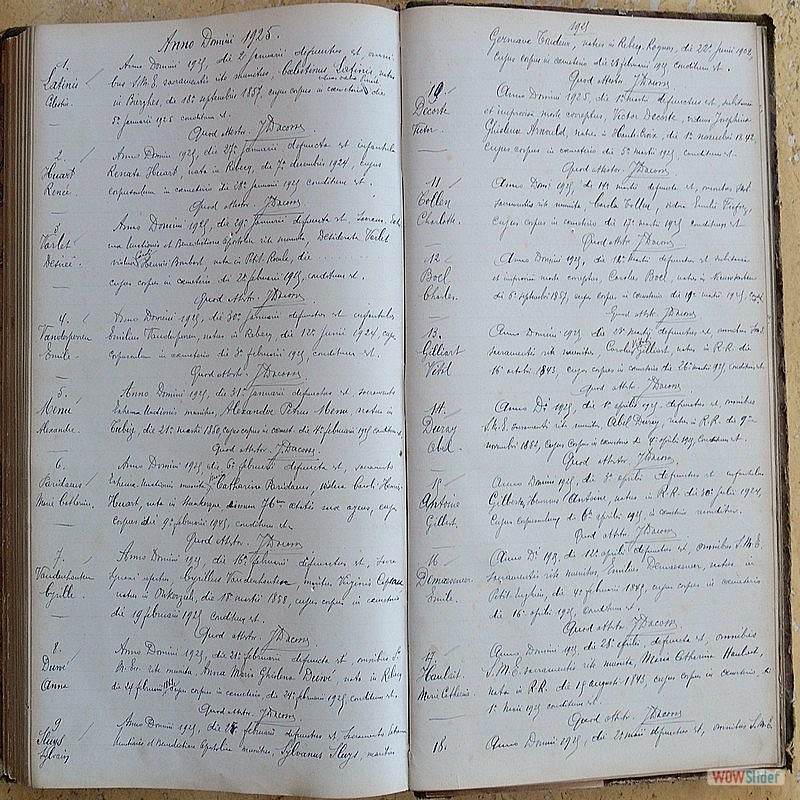 Anno Domini 1925.
1.
Latinis
Anno Domini 1925, die 2 januarii defunctus est, omni
bus S.M.E. sacramentis rite munitus, Celestinus Latinis, natus
in Bierghes, die 18ª septembris 1857, cujus corpus in cœmeterio die
5ª januarii 1925 conditum est.
Quod attestor. J Dacons
2.
Huart
Renée
Anno Domini 1925, die 27ª januarii defuncta est infantula
Renata Huart, nata in Rebecq, die 7ª decembris 1924, cujus
corpusculum in cœmeterio die 28ª januarii 1925 conditum est.
Quod attestor. J Dacons
3
Varlet
Désirée
Anno Domini 1925, die 29ª januarii defuncta est, Sacra
Unctionis et Benedictione Apostolica rite munita, Desiderata Varlet
nata in Petit Rœulx, die
cujus corpus in cœmeterio die 2ª februarii 1925, conditum est.
Quod attestor. J Dacons
4.
Vanderperren
Emile.
Anno Domini 1925, die 30ª januarii defunctus est infantulus
Emilius Vanderperren, natus in Rebecq, die 12ª junii 1924, cujus
corpusculum in cœmeterio die 3ª februarii 1925, conditum est.
Quod attestor. J Dacons
5.
Menu
Alexandre.
Anno Domini 1925, die 31ª januarii defunctus est, sacramento
Extremæ Unctionis munitus, Alexander Petrus Menu, natus in
Tubize, die 21ª martii 1860, cujus corpus in cœmet. die 4ª februarii 1925 conditum
Quod attestor. J Dacons.
6.
Marie Catherine.
Anno Domini 1925, die 6ª februarii defuncta est, sacramento
Extremæ Unctionis munita, Catharina
Huart, nata in annum 76um ætatis suæ agens, cujus
corpus die 9ª februarii 1925, conditum est.
Quod attestor. J Dacons
7.
Vanderhouten
Cyrille
Anno Domini 1925, die 16ª februarii defunctus est,
Cyrillus Vanderhouten, maritus Virginiæ
natus in Onkerzele, die 18ª martii 1858, cujus corpus in cœmeterio
die 19 februarii 1925 conditum est.
Quod attestor. J Dacons
8.
Duvé
Anna
Anno Domini 1925, die 21ª februarii defuncta est, omnibus S.
M.E. rite munita, Anna Maria Ghislena Duvé, nata in Rebecq
die 24 februarii cujus corpus in cœmeterio, die 24ª februarii 1925, conditum est.
Quod attestor. J Dacons
9
Sluys
Sylvain
Anno Domini 1925, die februarii defunctus est, Sacramento Extremæ
Unctionis et Benedictione Apostolica munitus, Sylvanus Sluys, maritus
1925
Germana natus in Rebecq-Rognon, die 22ª junii
cujus corpus in cœmeterio die 28 februarii 1925 conditum est.
Quod attestor. J Dacons
10.
Decoste
Victor.
Anno Domini 1925, die 1ª martii defunctus est, subitanea
et improvisa morte correptus, Victor Decoste, viduus Josephinæ
Ghislenæ Arnould, natus in Haut-Croix, die 1ª novembris 1842
cujus corpus in cœmeterio die 5ª martii 1925, conditum est.
Quod attestor. J Dacons
11
Collen
Charlotte.
Anno Domi 1925, die 14ª martii defuncta est, omnibus
sacramentis rite munita, Carola Collen, vidua Emilii
cujus corpus in cœmeterio die 17ª martii 1925 conditum est
Quod attestor. J Dacons
12
Boel
Charles.
Anno Domini 1925, die 18ª martii defunctus est subitanea
et improvisa morte correptus, Carolus Boel, natus in
die 5ª septembris 1857, cujus corpus in cœmeterio die 19ª martii 1925,
Quod attestor. J Dacons
13.
Gilliart
Vital
Anno Domini 1925, die 23ª martii defunctus est, omnibus
sacramentis rite munitus, Gilliart, natus in R.R. die
16 octobris 1843, cujus corpus in cœmeterio die 26ª martii 1925, conditum est.
Quod attestor. J Dacons
14.
Duray
Abel.
Anno Di 1925, die 1ª aprilis 1925 defunctus est, omnibus
S.M.E. sacramentis rite munitus Abel Duray, natus in R.R. die 9ª
novembris 1882, cujus corpus in cœmeterio die 4ª aprilis 1925, conditum est.
Quod attestor. J Dacons
15
Antoine
Gilbert.
Anno Domini 1925, die 3ª aprilis defunctus est infantulus
Gilbertus Antoine, natus in R.R. die 30ª julii 1924,
cujus corpusculum die 6ª aprilis 1925, in cœmeterio conditur.
Quod attestor. J Dacons
16
Demaesener
Emile.
Anno Di 1925, die 12ª aprilis defunctus est, omnibus S.M.E.
sacramentis rite munitus, Emilius Demaesener, natus in
Petit-Enghien, die 4ª februarii 1849, cujus corpus in cœmeterio
die 16ª aprilis 1925, conditum est.
Quod attestor. J Dacons
17.
Haubert
Marie Catherine.
Anno Domini 1925, die 28ª aprilis, defuncta est, omnibus
S.M.E. sacramentis rite munita, Maria Catherina Haubert,
nata in R.R. die 19 augusti 1843, cujus corpus in cœmeterio, die
1ª Maii 1925 conditum est.
Quod attestor. J Dacons
18.
Anno Domini 1925, die 2 maii defunctus est, omnibus S.M.E.
WOWSlider